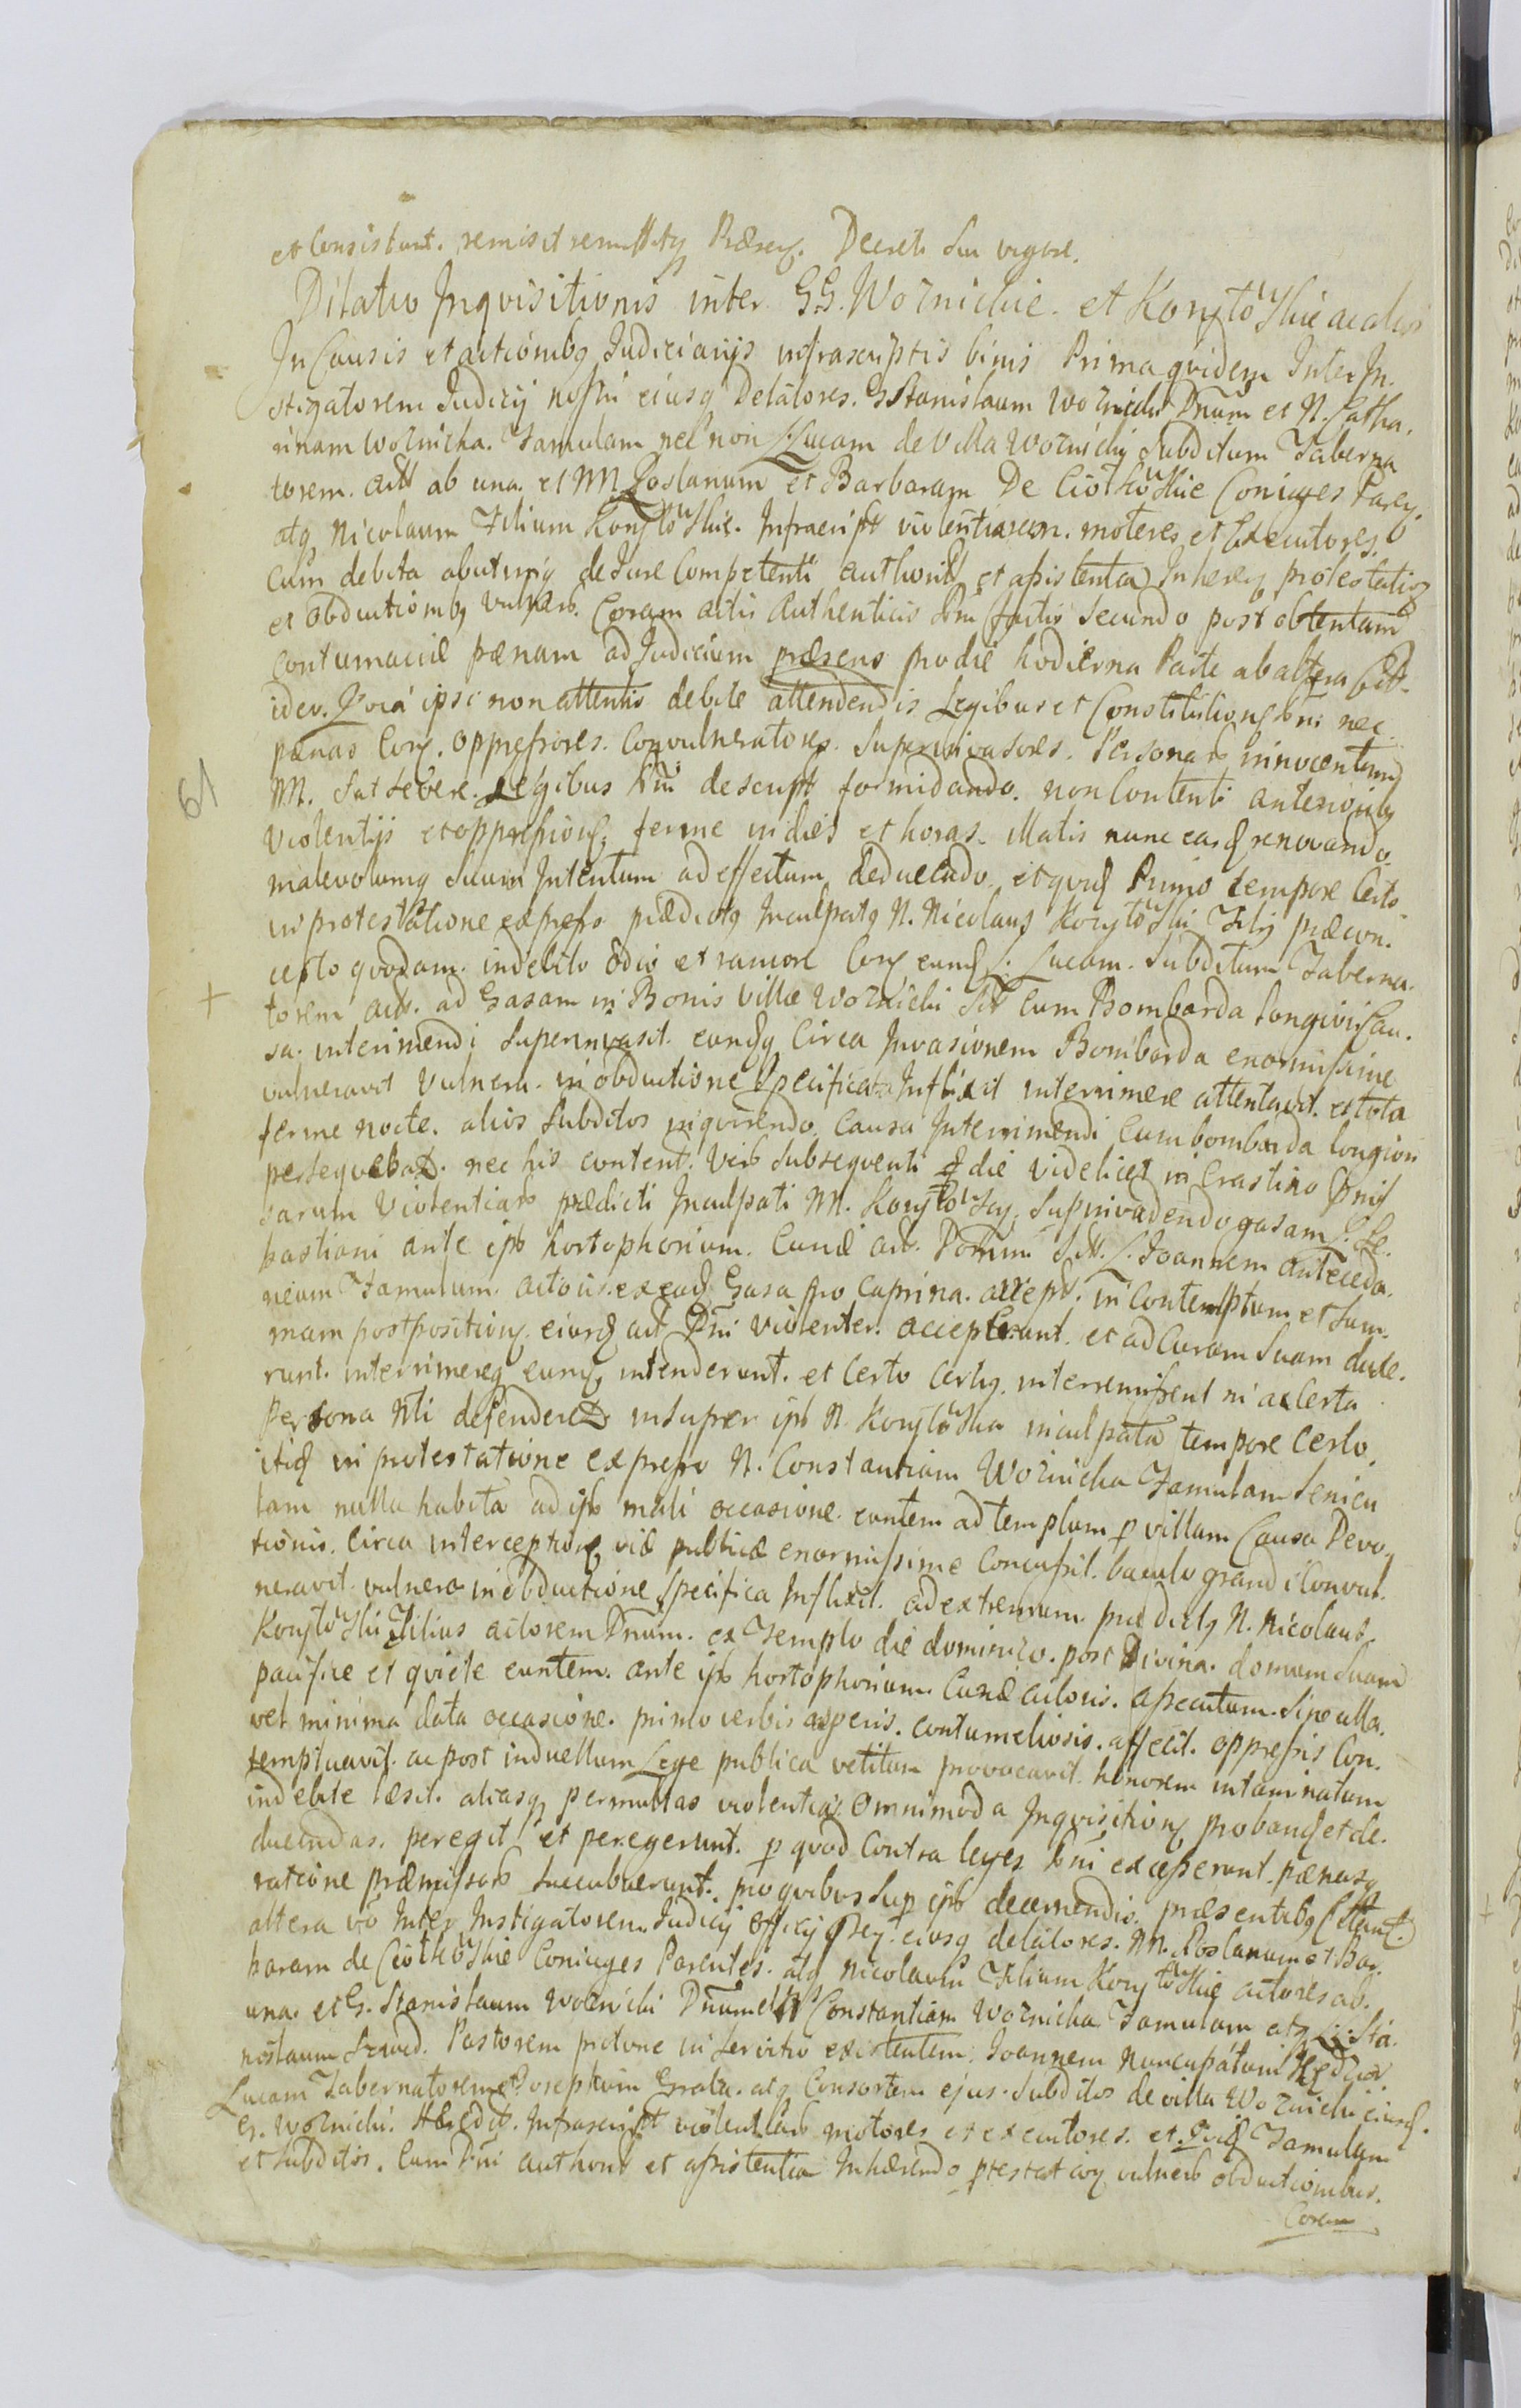 et Consistunt. remisit remittitq Præsen. Decreti sui vigore.
Dilatio Inqvisitionis inter GG. Woznickie. et Korytowskie acalios
In Causis et actionibq Judiciarijs infrascriptis binis Prima qvidem Inter In.
stigatorem Judicij nostri eiusq Delatores. G Stanislaum Woznicki Dnum et N. Catha.
rinam Woznicka. Famulam nec non L. Lucam de Villa Woznicki Subditum Taberna
torem. act ab una. et M Roslanum et Barbaram De Ciołkowskie Coniuges Paren.
atq Nicolaum Filium Korytowskie. Infrascript violentiarum. motores et Executores.
cum debita abutrinq de Jure Competenti authorit et assistentia Inheren protestatio
et obductionibq vulnerb. Coram actis Authenticis factis secundo post obtentam
contumaciæ pænam ad Judicium præsens pro die hodierna Parte ab altera Citt.
ideo. Qvia ipsi non attentis debite attendendis Legibus et Constitution Rni nec
pænas Con. oppressores. Convulneratores. Superinvasores. Personarb innocentum
M. sat severe. Legibus Rni descript formidando. non Contenti anterioribq
violentijs et oppression. ferme in dies et horas. illatis nunc easd renovando.
malevolumq Suum Intentum ad effectum deducendo. et qvid Primo tempore Certo
in protestatione expresso prædictq Inculpatq N. Nicolaus Korytowski Filij præcon.
cepto qvodam. indebito odio et rancore Con eund L. Lucam. Subditum Taberna.
torem act. ad Gasam in Bonis Villæ Woznicki Sit cum Bombarda longiori Cau.
sa. interimendi superinvasit. eundq Circa Invasionem Bombarda enormissime
vulneravit vulnera. in obductione Specificata Inflixit interimere attentavit. et tota
ferme nocte. alios Subditos inqvirendo. Causa Interimendi Cum bombarda longiori
perseqvebat. nec his content. verb subseqventi die videlicet in Crastino Pris
sarum Violentiarb prædicti Inculpati M. Korytowscy, Supinvadendo gasam L. Se.
bastiani ante ipb hortophorium. Curiæ act. Domini Sitt. L. Joannem
neum Famulum. actoris. ex ead Gasa pro caprina. accept. in Contemptum et Sum.
mam postposition. eiusd act Dni violenter. acceperunt. et ad Curam Suam duxe.
runt. interimereq eunq intenderunt. et Certo Certiq. interremissent ni a Certa
Persona Nti defenderet insuper ipb N. Korytowska inculpata tempore Certo
itid in protestatione expresso N. Constantiam Woznicka Famulam Senicu
lam nulla habita ad ipb mali occasione. euntem ad templum p villam Causa Devo.
tionis. Circa interception viæ publicæ enormissime Concussit. baculo grandi Convul.
neravit. vulnera in obductione specifica Inflixit. ad extremum prædictq N. Nicolaus
Korytowski Filius actorem Dnum. ex Templo die dominico. post Divina. domum suam
pacifice et qviete euntem. ante ipb hortophorium Curiæ actoris. assecutum. Sine ulla.
vel minima data occasione. primo verbis asperis. contumeliosis. affecit. oppressis Con.
temptuavit. ac post in duellum Lege publica vetitum provocavit. honorem intaminatum
indebite læsit. aliasq permultas violentias Omnimoda Inqvisition proband et de.
ducendas. peregit et peregerunt. p qvod Contra leges Rni excesserunt. pænasq
ratione præmissorb succubuerunt. pro qvibus sup ipb decernendis. præsentibq Cittant.
altera vo Inter Instigatorem Judicij officij eiusq delatores. M. Roslanum et Bar.
baram de Ciołkowskie Coniuges Parentes. atq Nicolaum Filium Korytowskie actores ab.
una. et G. Stanislaum Woznicki Dnum et N Constantiam Woznicka Famulam atq L. Sta.
nislaum Szwed. Pastorem pro tunc in servitio existentem. Joannem nuncupatum
Lucam Tabernatorem et Josephum Grala. atq Consortem ejus. Subditos de villa Woznicki eiusd.
G. Woznicki. Hæredit. Infrascript violentiarb motores et executores. et Famulam
et subditos. Cum Dni authorit et assistentia Inhærendo ptestation vulnerb obductionibus.
Coram